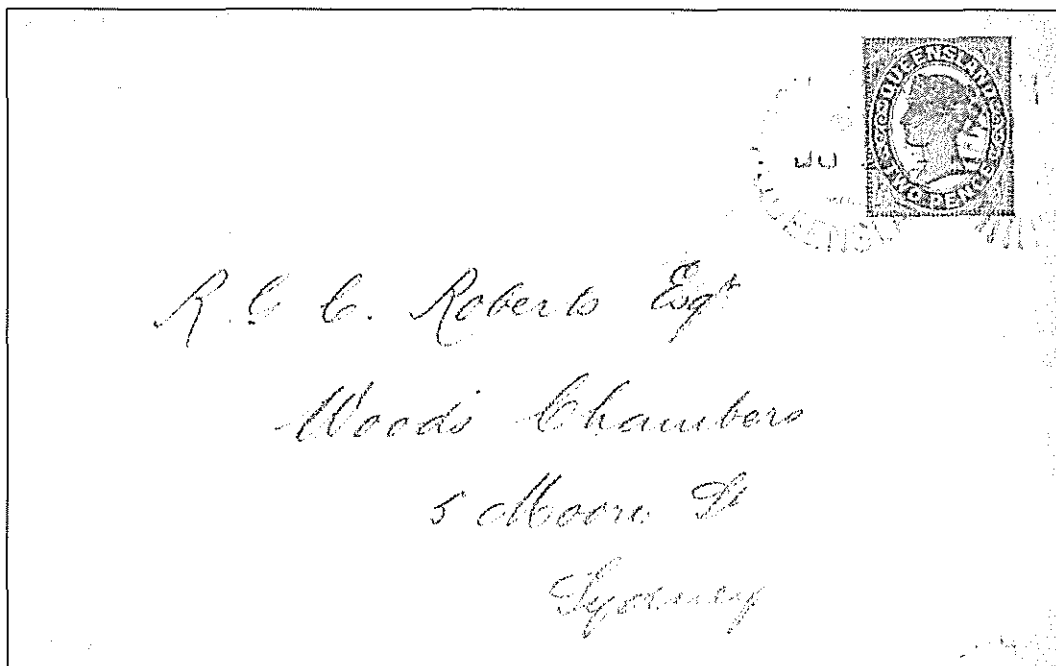 QUEENSLAND
TWO PENCE
JU
QUEENSLAND
R. C. C. Roberts Esqr
Woods Chambers
5 Moore St
Sydney